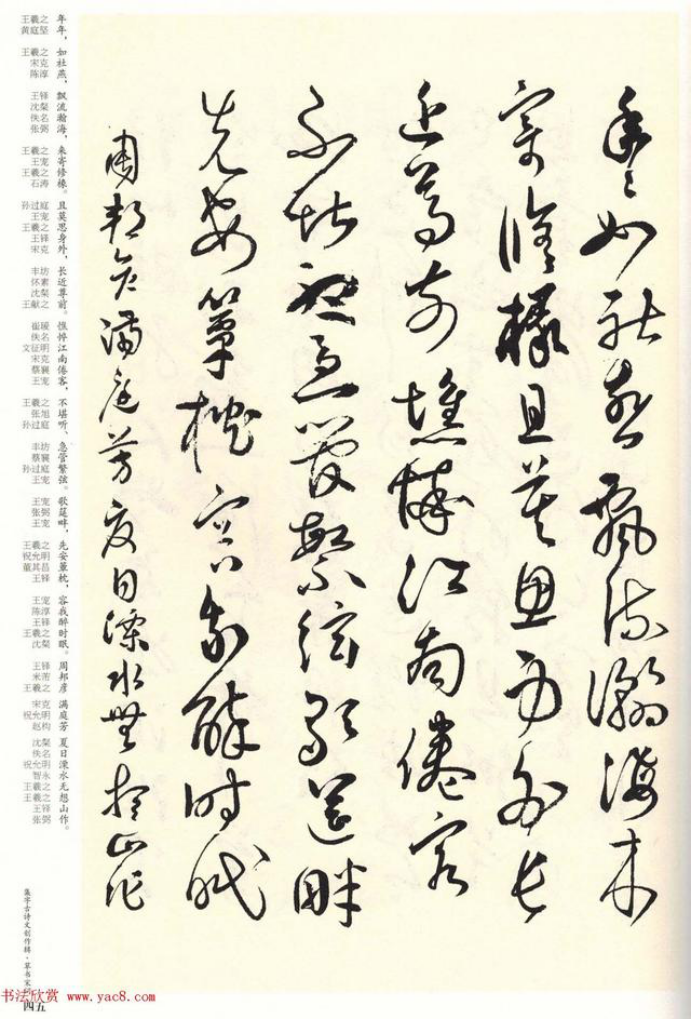 年〻如社燕飄流瀚海来
寄修椽且莫思身外长
近尊前憔悴江南倦客
不堪听急管繁弦歌筵畔
先安簟枕容我醉时眠
周邦彦满庭芳夏日溧水無想山作
年年，如社燕，飘流瀚海，来寄修椽。且莫思身外，长近尊前。憔悴江南倦客，不堪听，急管繁弦。歌筵畔，先安簟枕，容我醉时眠。周邦彦 满庭芳 夏日溧水无想山作。
王羲之 黄庭坚 王羲之 宋克 陈淳 王铎 沈粲 佚名 张弼 王羲之 王宠 王羲之 石涛 孙过庭 王宠 王羲之 王铎 宋克 丰坊 怀素 沈粲 王献之 崔瑗 佚名 文征明 宋克 蔡襄 王宠 王羲之 张旭 孙过庭 丰坊 蔡襄 孙过庭 王宠 王宠 张弼 王宠 王羲之 祝允明 董其昌 王铎 王宠 陈淳 王铎 王羲之 沈粲 王铎 米芾 王羲之 宋克 祝允明 赵构 沈粲 佚名 祝允明 智永 王羲之 王羲之 王铎 张弼
集字古诗文创作辑·草书宋词
四五
书法欣赏 www.yac8.com